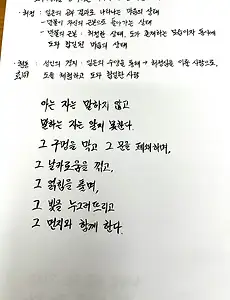 · 허정 : 일온의 공부 결과로 나타나는 마음의 상태
- 만물이 자신의 근본으로 돌아가는 상태
- 만물의 근본 : 허정한 상태, 도와 존재하는 모습이자 동시에
도와 합일된 마음의 상태
· 현동 : 성인의 경지 : 일온의 수양을 통해 → 허정심을 이룬 사람으로,
도를 체험하고 도와 합일한 사람
아는 자는 말하지 않고
말하는 자는 알지 못한다.
그 구멍을 막고 그 문을 폐쇄하며,
그 날카로움을 꺾고,
그 얽힘을 풀며,
그 빛을 누그러뜨리고
그 먼지와 함께 한다.